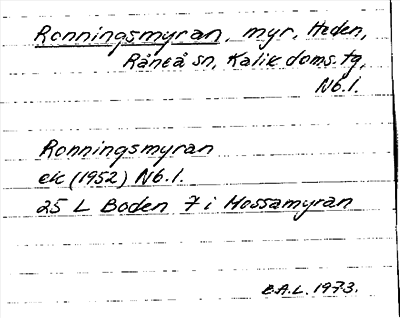 Ronningsmyran, myr, Heden,
Råneå sn, Kalix doms. tg,
Nb.l.
Ronningsmyran
ek (1952) Nb.l.
25 L Boden 7 i Hossamyran
E.A.L. 1973.